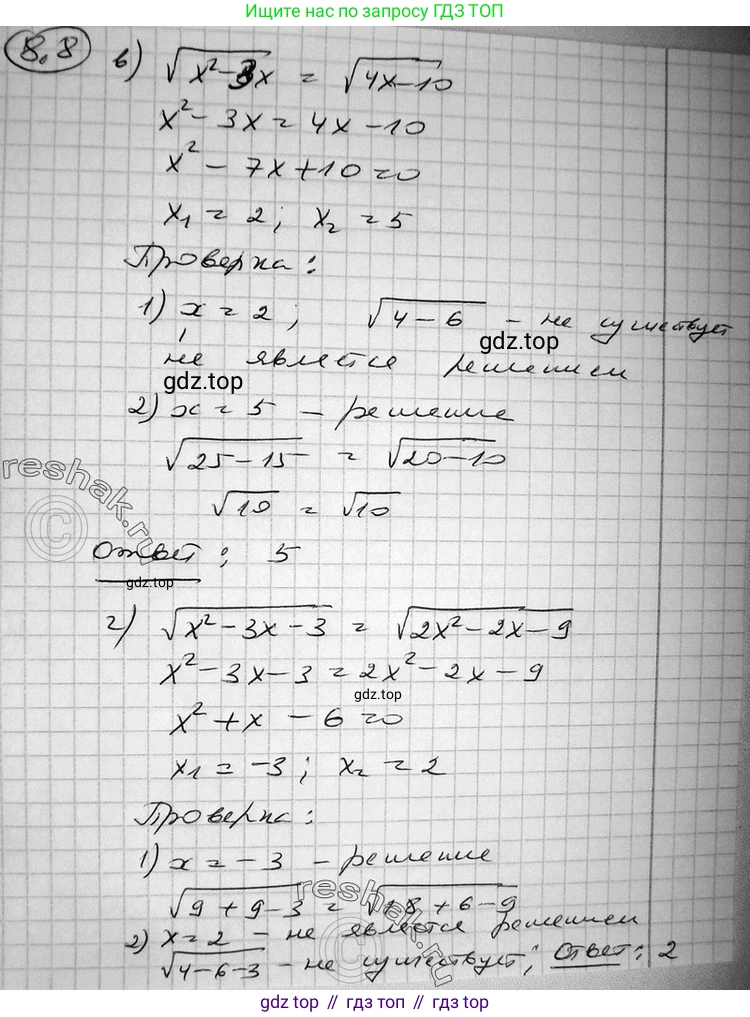 Ищите нас по запросу ГДЗ ТОП
8.8
в) √(x²-3x) = √(4x-10)
x² - 3x = 4x - 10
x² - 7x + 10 = 0
x₁ = 2; x₂ = 5
Проверка:
1) x = 2; √(4-6) - не существует
не является решением
gdz.top
gdz.top
2) x = 5 - решение
√(25-15) = √(20-10)
reshak.ru
√10 = √10
Ответ: 5
gdz.top
г) √(x²-3x-3) = √(2x²-2x-9)
x² - 3x - 3 = 2x² - 2x - 9
gdz.top
x² + x - 6 = 0
x₁ = -3; x₂ = 2
Проверка:
1) x = -3 - решение
√(9+9-3) = √(18+6-9)
reshak.ru
2) x = 2 - не является решением
√(4-6-3) - не существует; Ответ: 2
gdz.top // гдз топ // gdz top // гдз топ